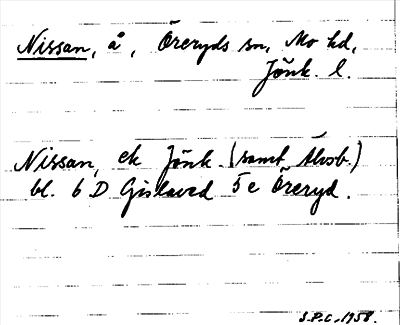 Nissan, å, Öreryds sn, Mo hd,
Jönk. l.
Nissan, ek Jönk. (samt Älvsb.)
bl. 6 D Gislaved 5 e Öreryd.
S.P.C. 1958.